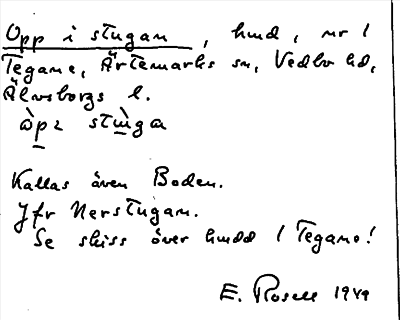 Opp i stugan, hmd, nr 1
Tegane, Ärtemarks sn, Vedbo hd,
Älvsborgs l.
òpɪ stùga
Kallas även Boden.
Jfr Nerstugan.
Se skiss över hmdd 1 Tegane!
E. Rosell 1949